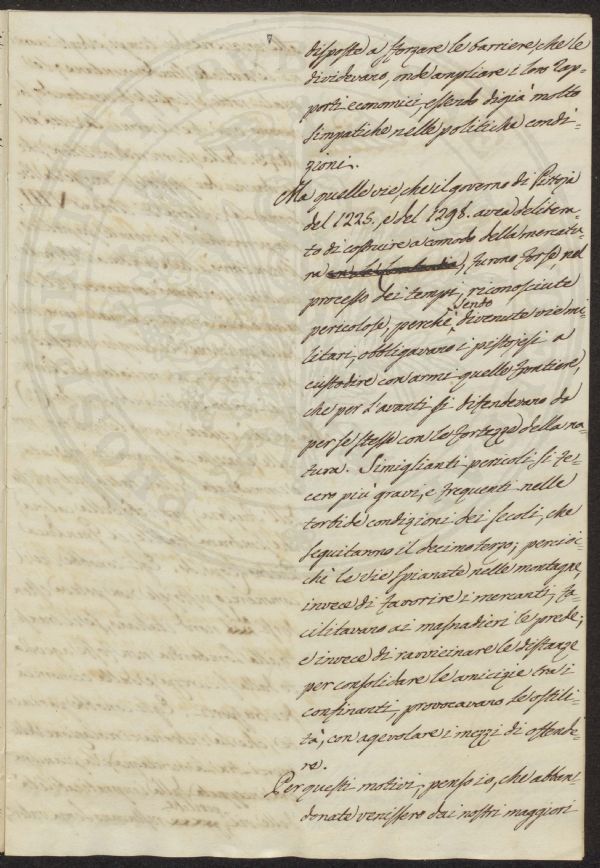 disposte a forzare le barriere, che le
dividevano, onde ampliare i loro rap=
porti economici, essendo digià molto
simpatiche nelle politiche condi=
zioni.
Ma quelle vie, che il governo di Pistoja
del 1225. e del 1298. avea delibera=
to di costruire a comodo della mercatu=
ra, furono forse, nel
processo dei tempi, riconosciute
pericolose, perchè
sendo
divenute vie mi=
litari, obbligavano i pistojesi a
custodire con armi quelle frontiere,
che per l'avanti si difendevano da
per se stesse con le fortezze della na=
tura. Simiglianti pericoli si fe=
cero più gravi, e frequenti nelle
torbide condizioni dei secoli, che
seguitanno il decimoterzo; percioc=
chè le vie spianate nelle montagne,
invece di favorire i mercanti, fa=
cilitavano ai masnadieri le prede;
e invece di ravvicinare le distanze
per consolidare le amicizie tra i
confinanti, provocavano le ostili=
tà, con agevolare i mezzi di offende=
re.
Per questi motivi, penso io, che abban=
donate venissero dai nostri maggiori